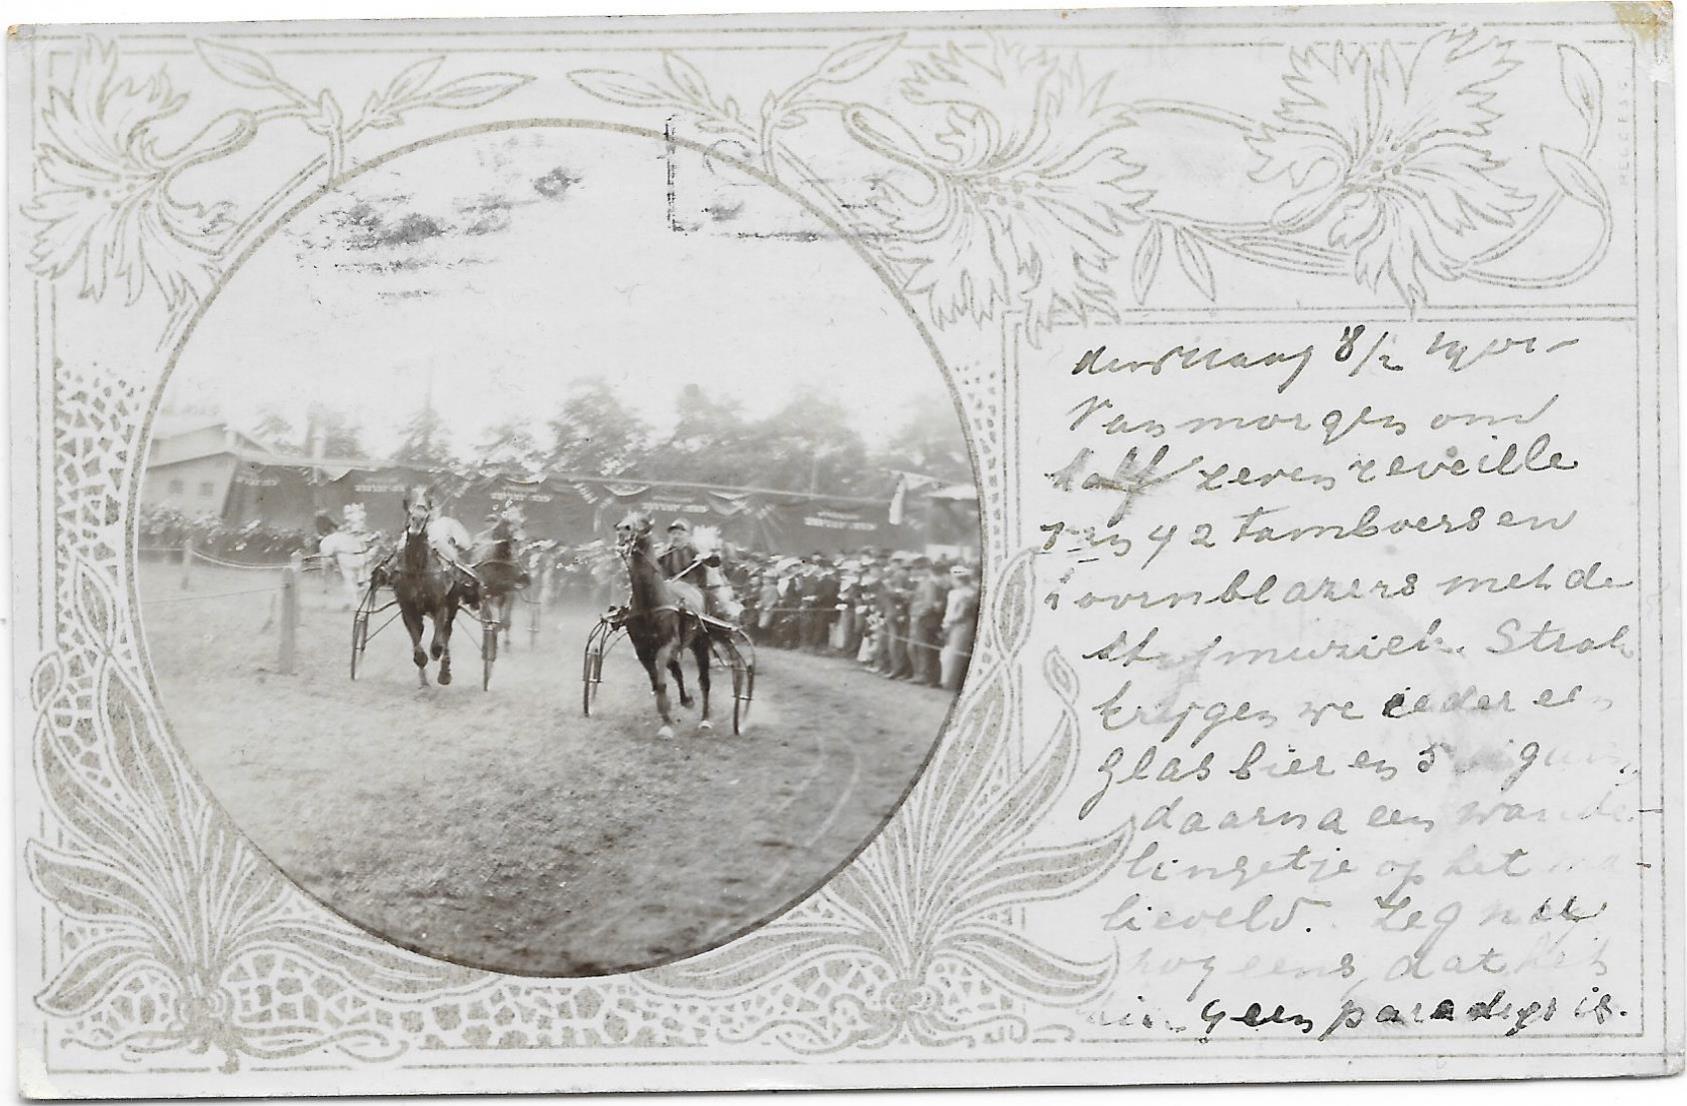 den Haag 8/2 1901 -
Van morgen om
half zeven reveille
42 tamboers en
hoornblazers met de
stafmuziek. Strak
krijgen we ieder een
glas bier en 5
daarna een wande-
lingetje op het ma-
lieveld. Zeg nu
nog eens, dat het
hier geen paradijs is.